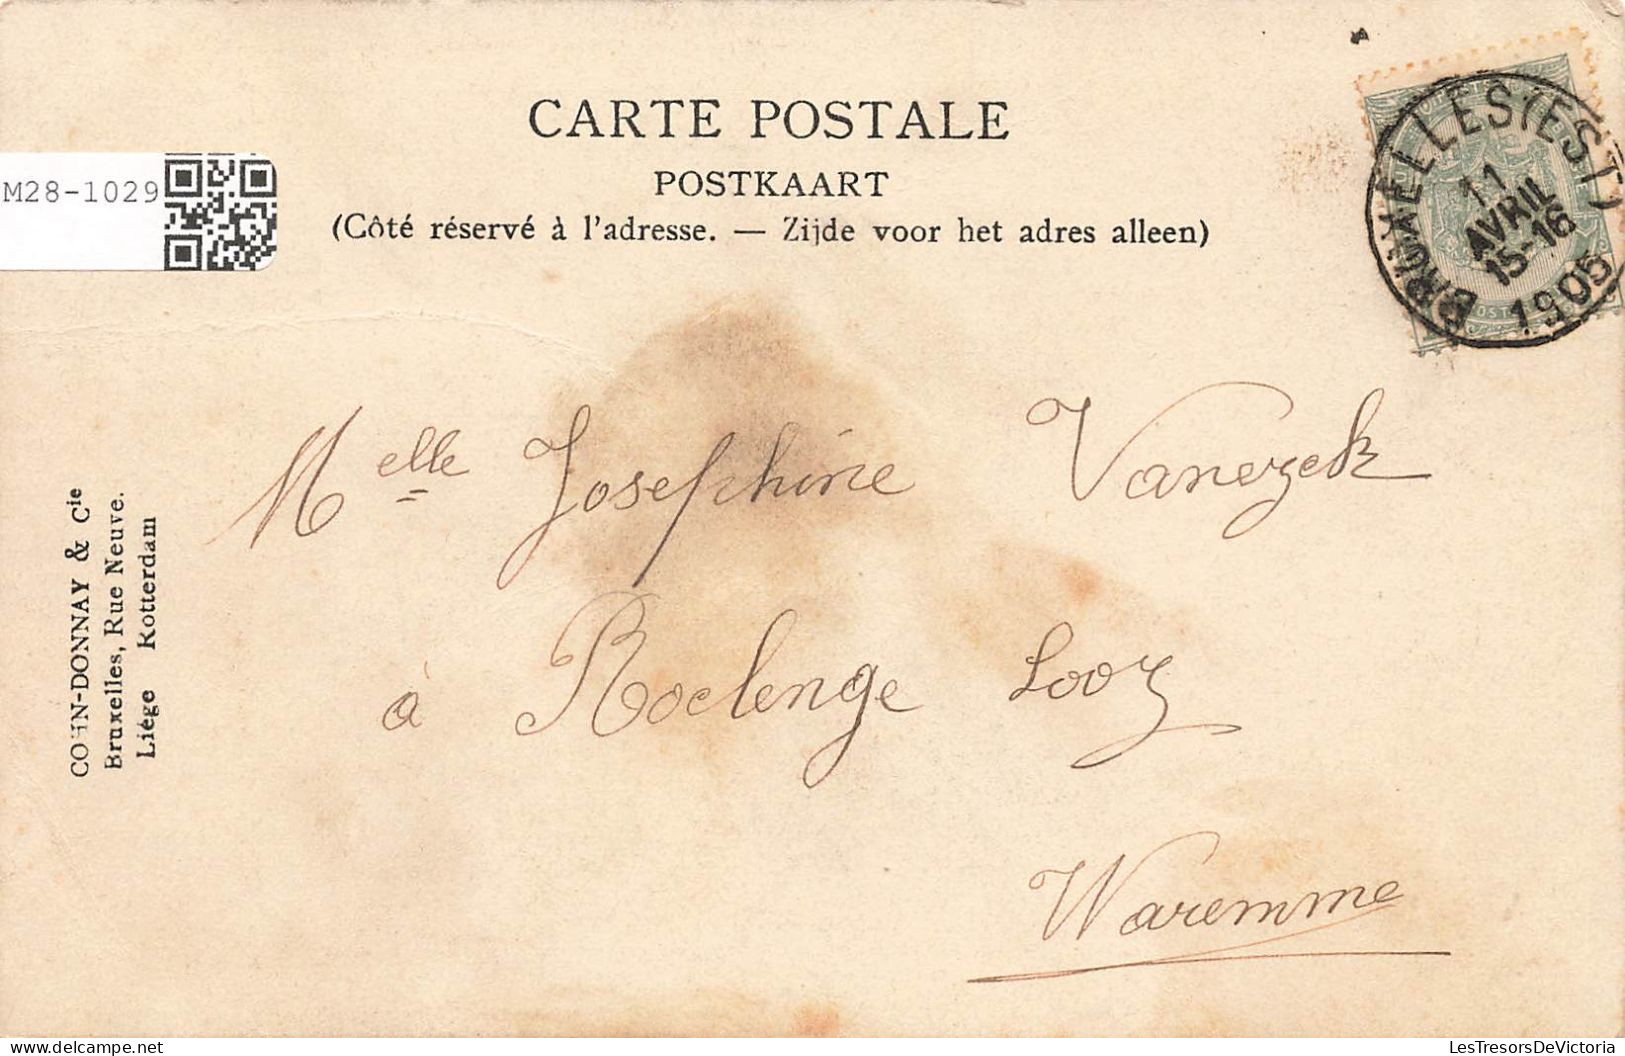 CARTE POSTALE
POSTKAART
(Côté réservé à l'adresse. — Zijde voor het adres alleen)
M28-1029
BRUXELLES (EST)
11
AVRIL
15-16
1905
COHN-DONNAY & Cie
Bruxelles, Rue Neuve.
Liége Rotterdam
Melle Josephine Vanezek
à Roclenge Looz
Waremme
LesTresorsDeVictoria
delcampe.net